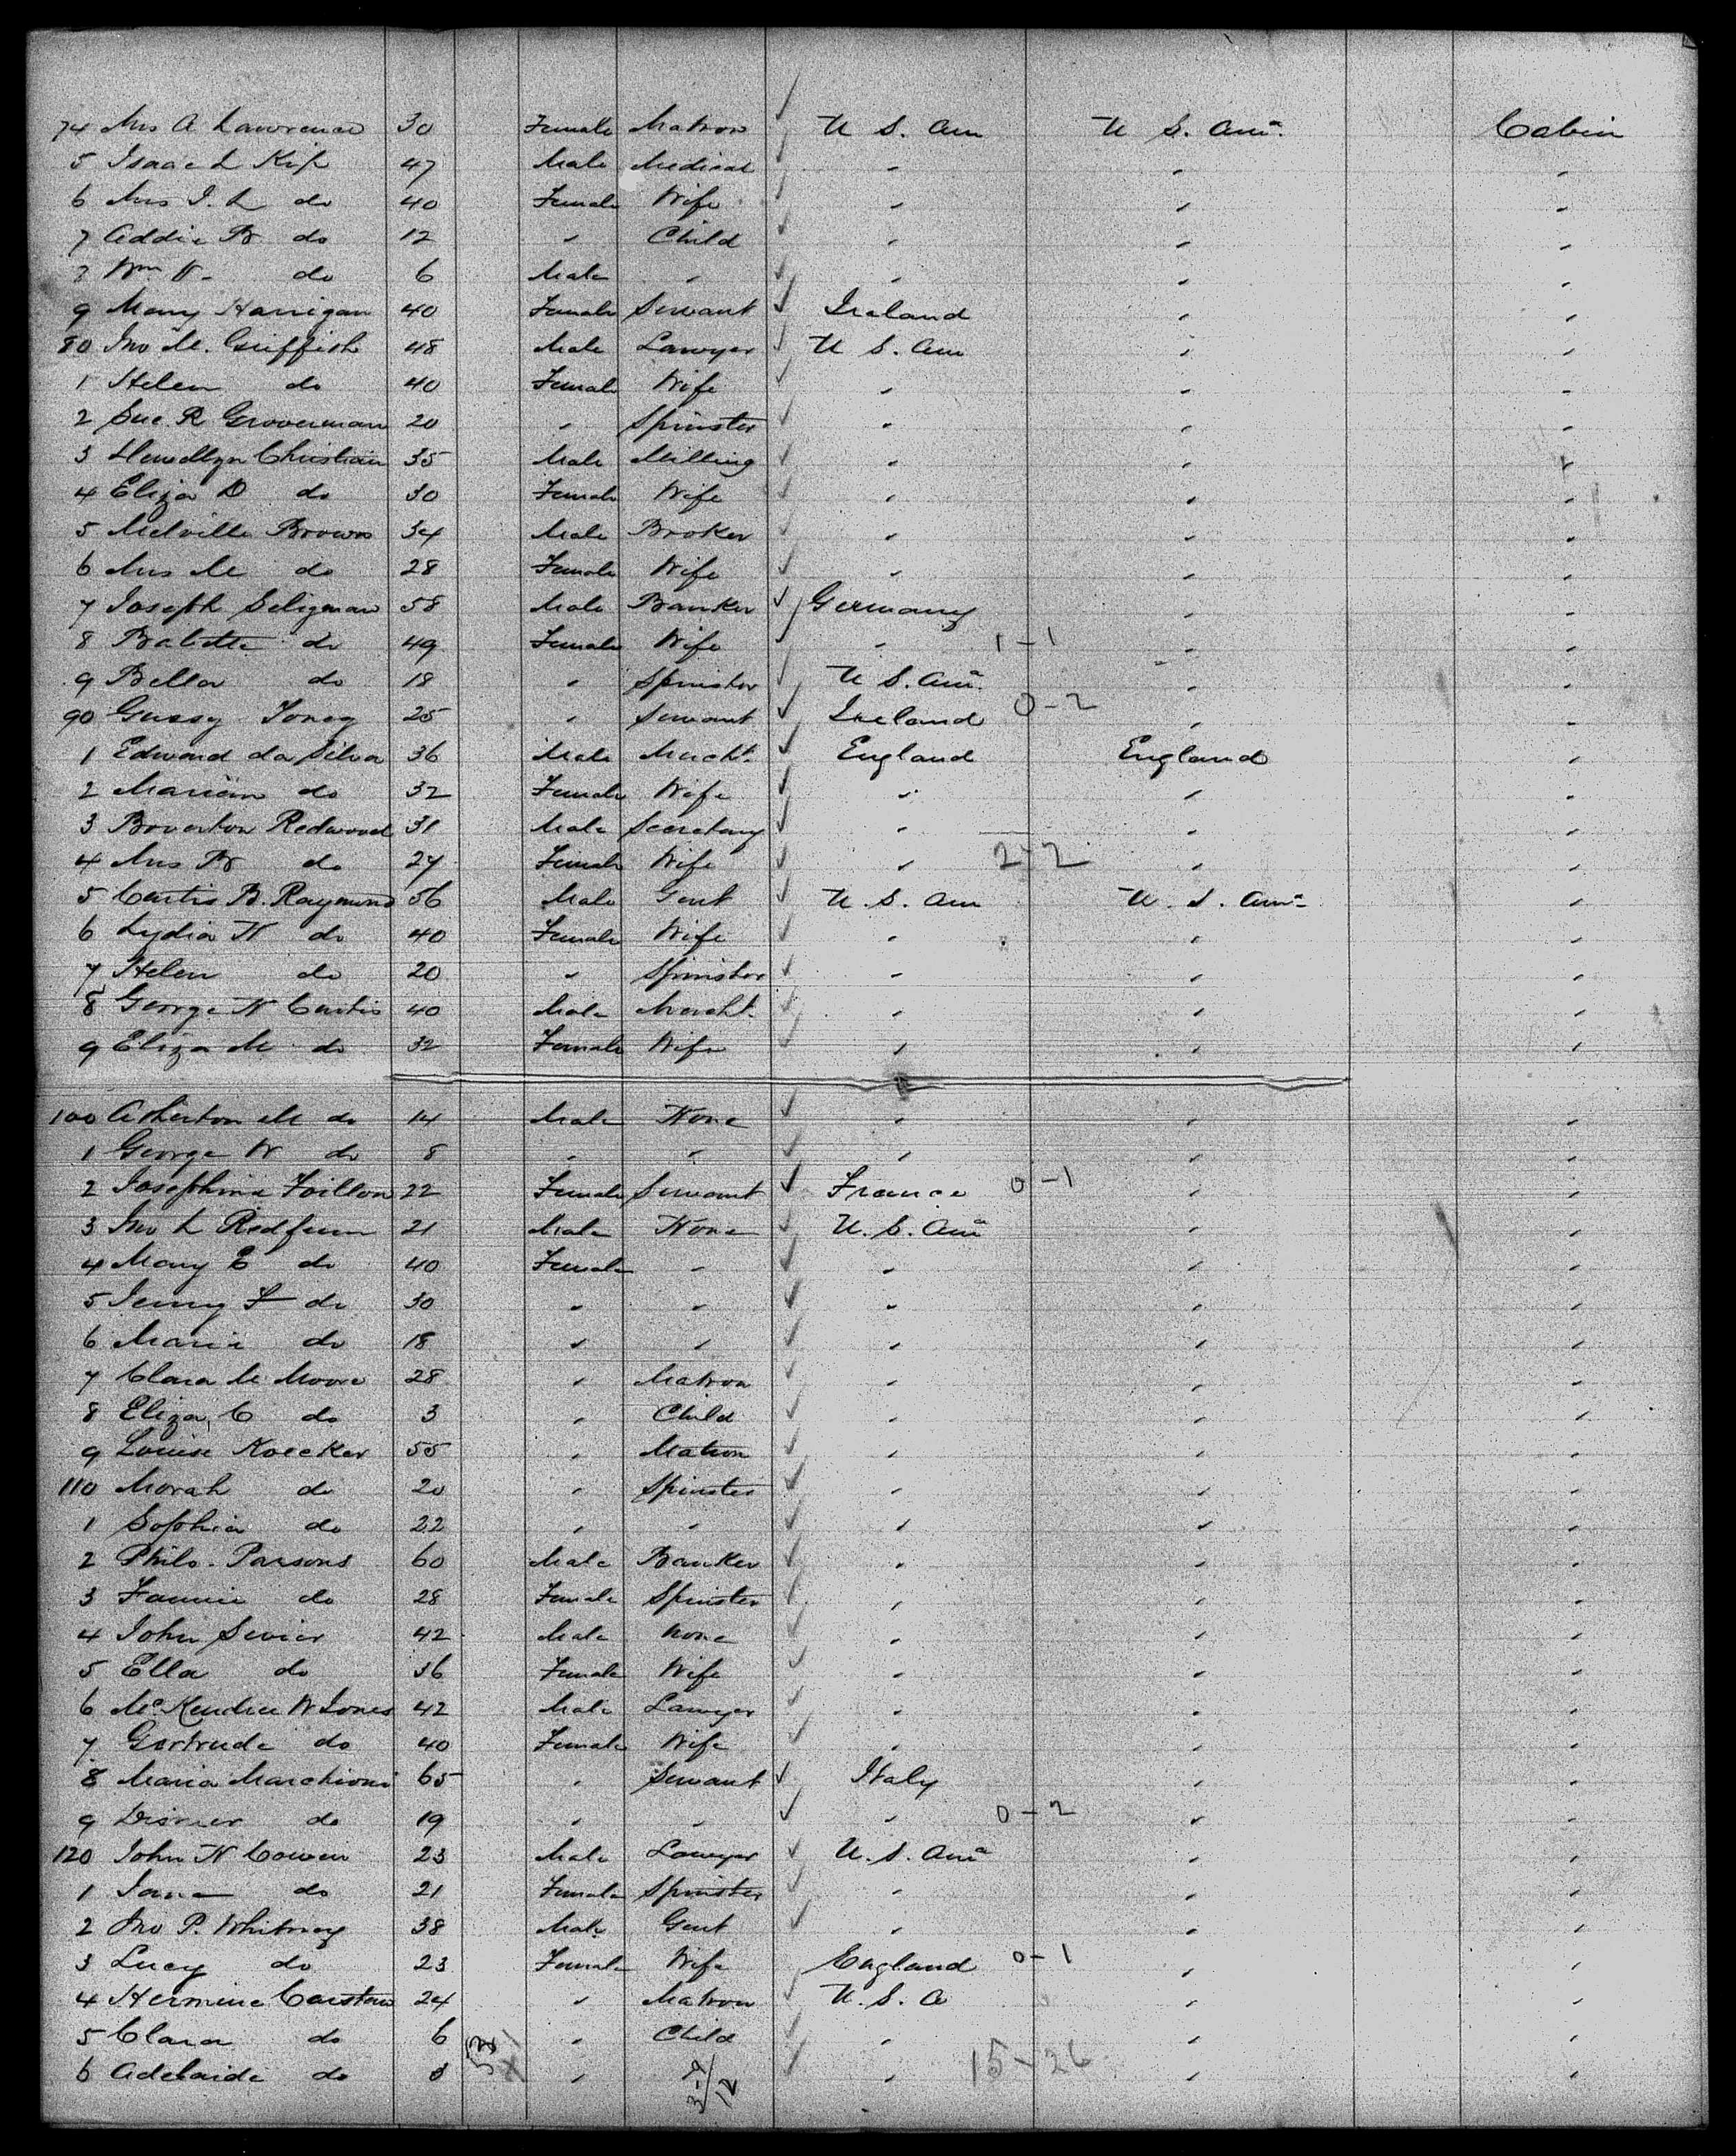 74 Mrs A Lawrence 30 Female Matron U S. Am U S. Am. Cabin
5 Isaac L Kip 47 Male Medical " " "
6 Mrs I. L do 40 Female Wife " " "
7 Addie B do 12 " Child " " "
8 Wm V. do 6 Male " " " "
9 Mary Harrigan 40 Female Servant Ireland " "
80 Jno M. Griffith 48 Male Lawyer U S. Am " "
1 Helen do 40 Female Wife " " "
2 Sue R Groverman 20 " Spinster " " "
3 Llewellyn Christian 35 Male Milling " " "
4 Eliza D do 30 Female Wife " " "
5 Melville Brown 34 Male Broker " " "
6 Mrs M do 28 Female Wife " " "
7 Joseph Seligman 58 Male Banker Germany " "
8 Babette do 49 Female Wife " 1-1 " "
9 Bella do 18 " Spinster U S. Am. " "
90 Gussy 25 " Servant Ireland 0-2 " "
1 Edward da Silva 36 Male Mercht. England England "
2 Marian do 32 Female Wife " " "
3 Boverton Redwood 31 Male Secretary " " "
4 Mrs B do 27 Female Wife " 2-2 " "
5 Curtis B. Raymond 56 Male Gent U. S. Am U. S. Am. "
6 Lydia H do 40 Female Wife " " "
7 Helen do 20 " Spinster " " "
8 George N Curtis 40 Male Mercht. " " "
9 Eliza M do 32 Female Wife " " "
100 Atherton M do 14 Male None " " "
1 George W do 8 " " " " "
2 Josephine 22 Female Servant France 0-1 " "
3 Jno L Redfern 21 Male None U. S. Am " "
4 Mary E do 40 Female " " " "
5 Jenny F do 30 " " " " "
6 Marie do 18 " " " " "
7 Clara M Moore 28 " Matron " " "
8 Eliza C do 3 " Child " " "
9 Louise Koecker 55 " Matron " " "
110 Morah do 20 " Spinster " " "
1 Sophia do 22 " " " " "
2 Philo. Parsons 60 Male Banker " " "
3 Fannie do 28 Female Spinster " " "
4 John Sevier 42 Male None " " "
5 Ella do 36 Female Wife " " "
6 McKendree W Jones 42 Male Lawyer " " "
7 Gertrude do 40 Female Wife " " "
8 Maria Marchioni 65 " Servant Italy " "
9 do 19 " " " 0-2 " "
120 John N Cowen 23 Male Lawyer U. S. Am " "
1 Jane do 21 Female Spinster " " "
2 Jno P. Whitney 38 Male Gent " " "
3 Lucy do 23 Female Wife England 0-1 " "
4 Hermine 24 " Matron U. S. A " "
5 Clara do 6 " Child " " "
6 Adelaide do " " 15-26 " "